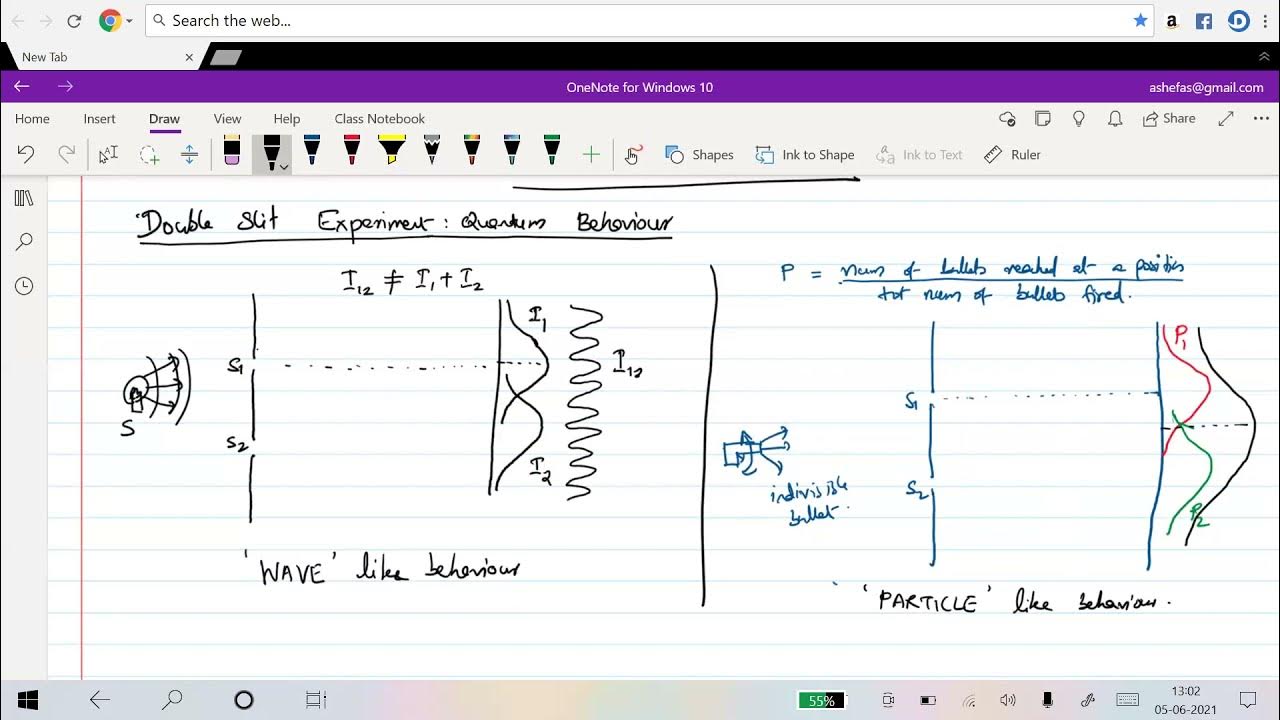 Search the web...
New Tab
OneNote for Windows 10
ashefas@gmail.com
Home Insert Draw View Help Class Notebook
Share
Shapes Ink to Shape Ink to Text Ruler
Double Slit Experiment: Quantum Behaviour
I12 ≠ I1 + I2
I1
S1
I12
S
S2
I2
'WAVE' like behaviour
P = num of bullets reached at a position
tot num of bullets fired.
P1
S1
S2
indivisible
bullet.
P2
'PARTICLE' like behaviour.
55%
13:02
05-06-2021